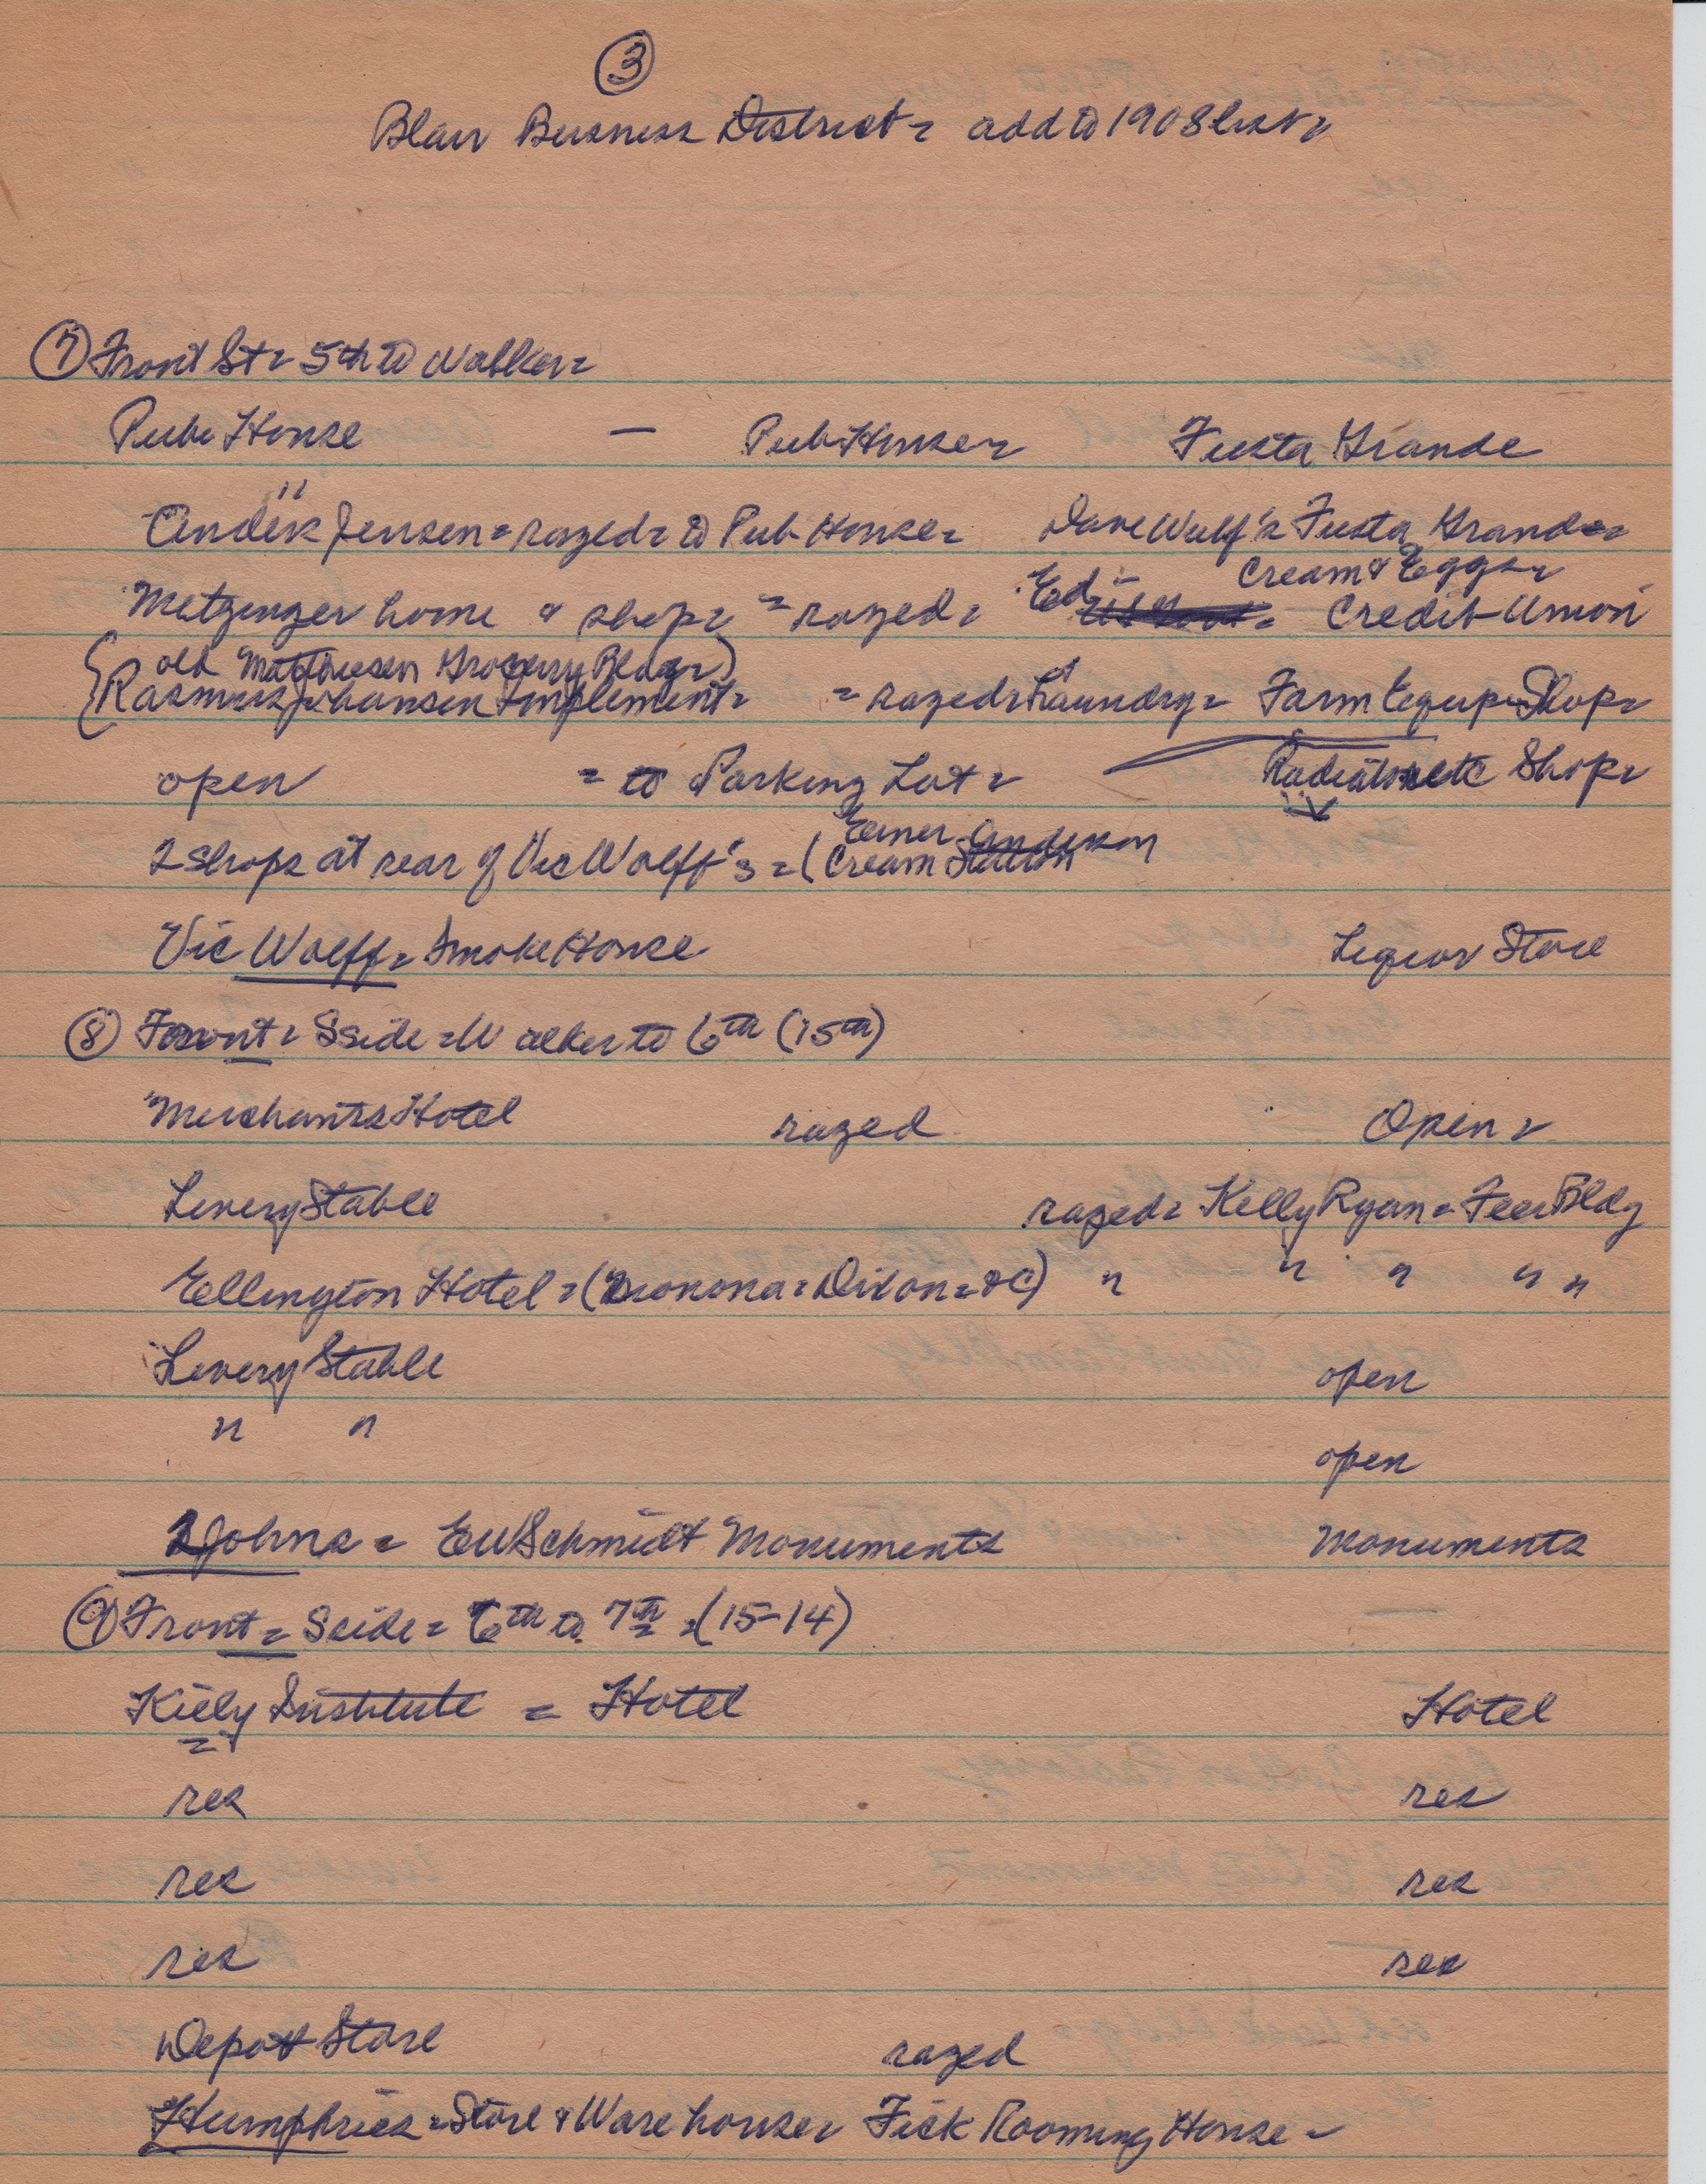 3
Blair Business District = add to 1908 list =
7 Front St = 5th to Walker =
Pub. House — Pub. House = Fiesta Grande
"
Jensen = razed = to Pub House = Dave Wulf's Fiesta Grande =
Cream & Eggs =
Metzinger home & shop = = razed = Ed = Credit Union
{ old Matthiesen Grocery Bldg = )
{ Rasmus Johansen Implement = = razed = Laundry = Farm Equip Shop =
open = to Parking Lot = Radiator etc Shop =
Elmer Anderson
2 shops at rear of Vic Wolff's = ( Cream Station
Vic Wolff = Smoke House Liquor Store
8 Front = S side = Walker to 6th (15th)
Merchants Hotel razed Open =
Livery Stable razed = Kelly Ryan = Feer Bldg
Ellington Hotel = ( = Dixon = & C) " " " " "
Livery Stable open
" " open
Johns = EW Schmidt Monuments Monuments
9 Front = S side = 6th to 7th = (15-14)
Kiely Institute = Hotel Hotel
res res
res res
res res
Depot Store razed
Humphries = Store & Warehouse = Fick Rooming House =